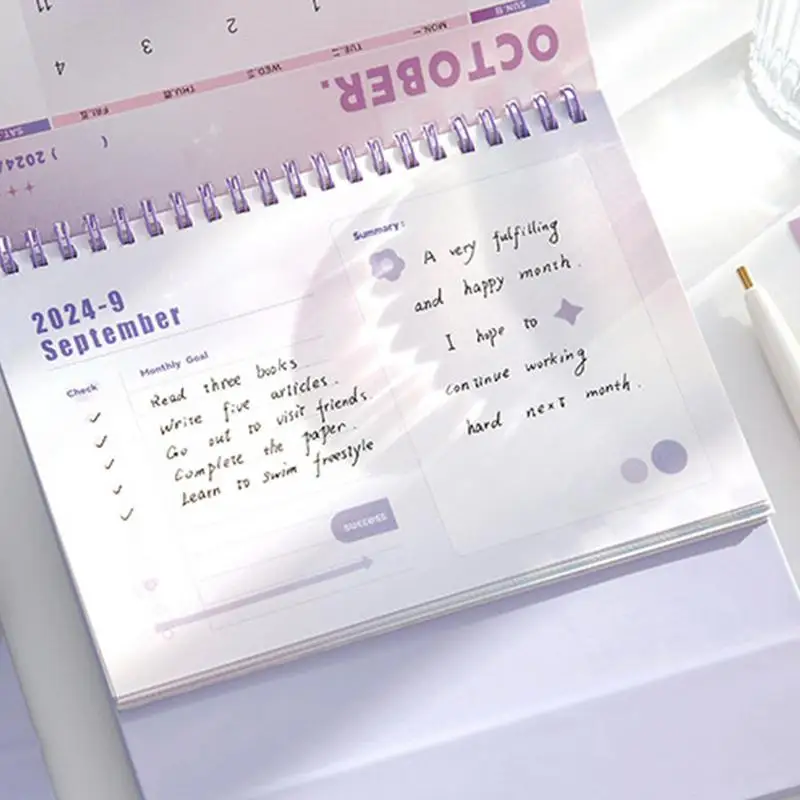 11
1
2
3
4
SUN.日
MON.一
TUE.二
WED.三
THU.四
FRI.五
SAT.
OCTOBER.
( ) 2024
2024-9
September
Check
Monthly Goal
✓ Read three books
✓ Write five articles.
✓ Go out to visit friends.
✓ Complete the paper.
✓ Learn to swim freestyle
success
Summary:
A very fulfilling
and happy month.
I hope to
continue working
hard next month.